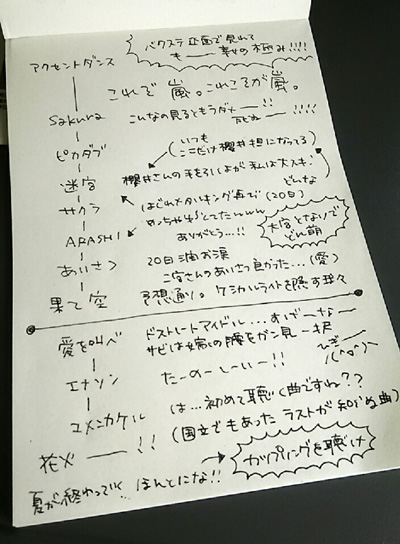 バクステ企画で見れて
アクセントダンス も― 幸せの極み!!!!
これぞ 嵐。これこそが嵐。
Sakura こんなの見るともうダメ――!! 死ぬ――!!!!
ピカダブ (いつもここだけ櫻井担になってる)
迷宮 櫻井さんの手をふりよが私は大スキ。
サクラ はじめメタルキング真ごで(20日) どんな
めっちゃゆらとてたwww
ARASHI ありがとう…!!
大宮となりでどん萌
あいさつ 20日涌お涙
二宮さんのあいさつ良かった…(愛)
果て空 予想通り。ケミカルライトを隠す球々
愛を叫べ ドストレートアイドル…すげーなー
サビは嬉しの腰をガン見一択
エナソン たーのーしーいー!!
ユメニカケル は…初めて聴く曲ですね??
花火――!! (国立でもあった ラストが知らぬ曲)
夏が終わっていく ほんとにな!! カップリングを聴け